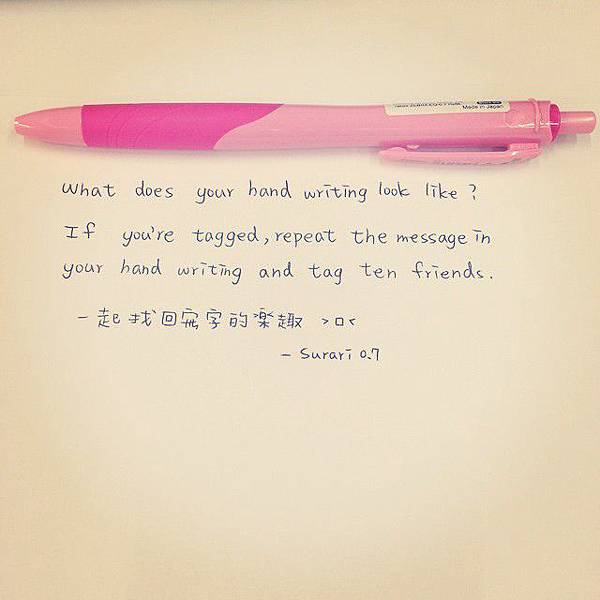 Made in Japan
What does your hand writing look like?
If you're tagged, repeat the message in
your hand writing and tag ten friends.
一起找回寫字的樂趣 >口<
- Surari 0.7